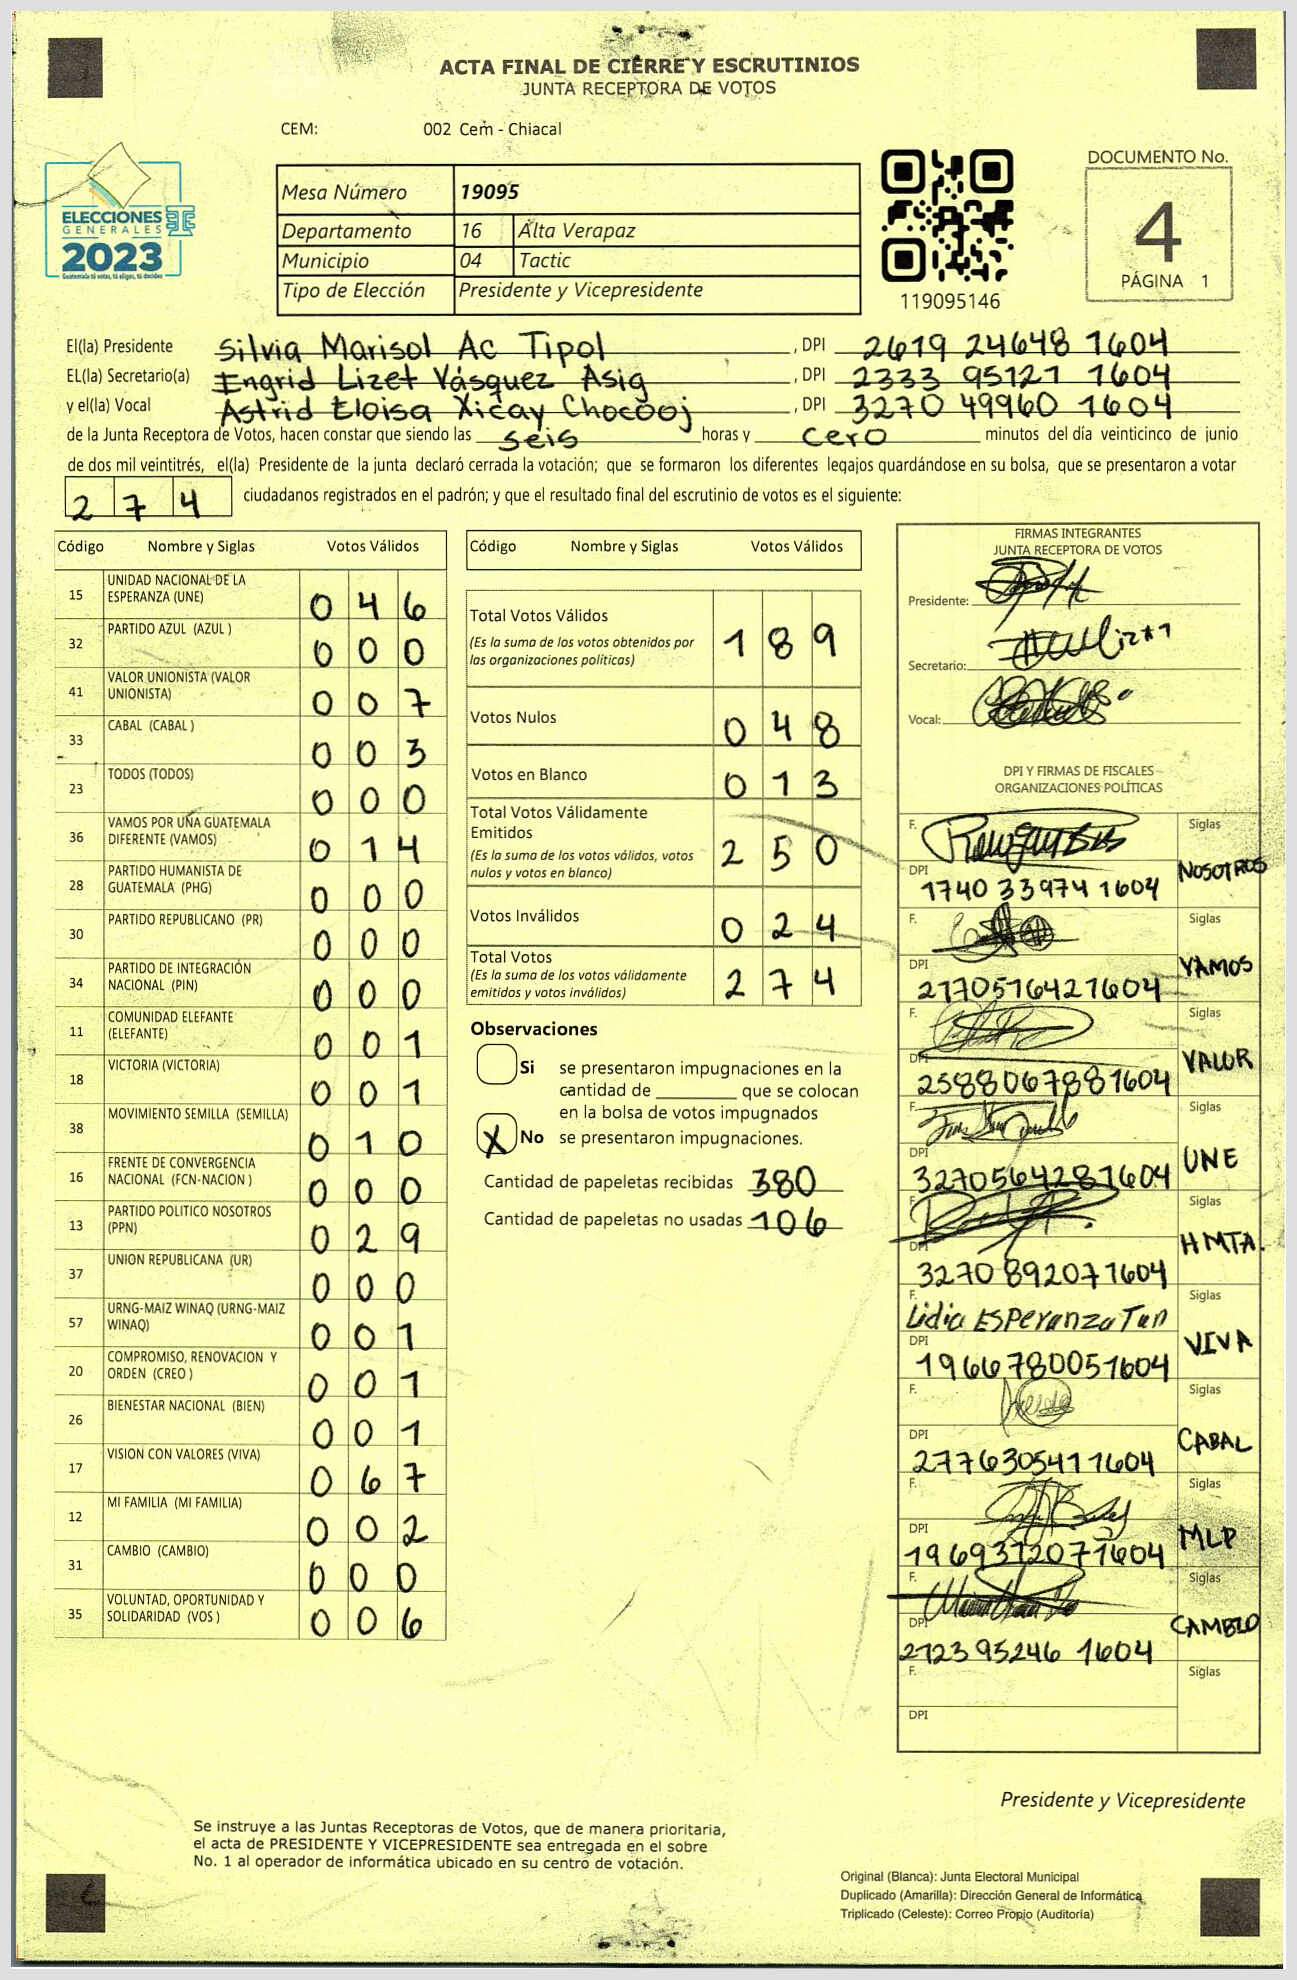 ACTA FINAL DE CIERRE Y ESCRUTINIOS
JUNTA RECEPTORA DE VOTOS
CEM: 002 Cem - Chiacal
ELECCIONES
GENERALES
2023
Guatemala tú votas, tú eliges, tú decides
Mesa Número 19095
Departamento 16 Alta Verapaz
Municipio 04 Tactic
Tipo de Elección Presidente y Vicepresidente
119095146
DOCUMENTO No.
4
PÁGINA 1
El(la) Presidente Silvia Marisol Ac Tipol , DPI 2619 24648 1604
EL(la) Secretario(a) Ingrid Lizet Vásquez Asig , DPI 2333 95121 1604
y el(la) Vocal Astrid Eloisa Xicay Chocooj , DPI 3270 49960 1604
de la Junta Receptora de Votos, hacen constar que siendo las seis horas y cero minutos del día veinticinco de junio
de dos mil veintitrés, el(la) Presidente de la junta declaró cerrada la votación; que se formaron los diferentes legajos guardándose en su bolsa, que se presentaron a votar
274 ciudadanos registrados en el padrón; y que el resultado final del escrutinio de votos es el siguiente:
Código Nombre y Siglas Votos Válidos
15 UNIDAD NACIONAL DE LA ESPERANZA (UNE) 046
32 PARTIDO AZUL (AZUL ) 000
41 VALOR UNIONISTA (VALOR UNIONISTA) 007
33 CABAL (CABAL ) 003
23 TODOS (TODOS) 000
36 VAMOS POR UNA GUATEMALA DIFERENTE (VAMOS) 014
28 PARTIDO HUMANISTA DE GUATEMALA (PHG) 000
30 PARTIDO REPUBLICANO (PR) 000
34 PARTIDO DE INTEGRACIÓN NACIONAL (PIN) 000
11 COMUNIDAD ELEFANTE (ELEFANTE) 001
18 VICTORIA (VICTORIA) 001
38 MOVIMIENTO SEMILLA (SEMILLA) 010
16 FRENTE DE CONVERGENCIA NACIONAL (FCN-NACION ) 000
13 PARTIDO POLITICO NOSOTROS (PPN) 029
37 UNION REPUBLICANA (UR) 000
57 URNG-MAIZ WINAQ (URNG-MAIZ WINAQ) 001
20 COMPROMISO, RENOVACION Y ORDEN (CREO ) 001
26 BIENESTAR NACIONAL (BIEN) 001
17 VISION CON VALORES (VIVA) 067
12 MI FAMILIA (MI FAMILIA) 002
31 CAMBIO (CAMBIO) 000
35 VOLUNTAD, OPORTUNIDAD Y SOLIDARIDAD (VOS ) 006
Código Nombre y Siglas Votos Válidos
Total Votos Válidos 189
(Es la suma de los votos obtenidos por
las organizaciones políticas)
Votos Nulos 048
Votos en Blanco 013
Total Votos Válidamente
Emitidos 250
(Es la suma de los votos válidos, votos
nulos y votos en blanco)
Votos Inválidos 024
Total Votos 274
(Es la suma de los votos válidamente
emitidos y votos inválidos)
Observaciones
Si se presentaron impugnaciones en la
cantidad de ________ que se colocan
en la bolsa de votos impugnados
X No se presentaron impugnaciones.
Cantidad de papeletas recibidas 380
Cantidad de papeletas no usadas 106
FIRMAS INTEGRANTES
JUNTA RECEPTORA DE VOTOS
Presidente:
Secretario:
Vocal:
DPI Y FIRMAS DE FISCALES
ORGANIZACIONES POLÍTICAS
F. Siglas
DPI 1740 33974 1604 NOSOTROS
F. Siglas
DPI 2170516421604 VAMOS
F. Siglas
DPI 2588067881604 VALOR
F. Siglas
DPI 3270564281604 UNE
F. Siglas
DPI 3270 892071604 HMTA.
F. Lidia ESPeranza Tun Siglas
DPI 1966780051604 VIVA
F. Siglas
DPI 2776305411604 CABAL
F. Siglas
DPI 1969372071604 MLP
F. Siglas
DPI 2723 95246 1604 CAMBIO
F. Siglas
DPI
Presidente y Vicepresidente
Se instruye a las Juntas Receptoras de Votos, que de manera prioritaria,
el acta de PRESIDENTE Y VICEPRESIDENTE sea entregada en el sobre
No. 1 al operador de informática ubicado en su centro de votación.
Original (Blanca): Junta Electoral Municipal
Duplicado (Amarilla): Dirección General de Informática
Triplicado (Celeste): Correo Propio (Auditoría)